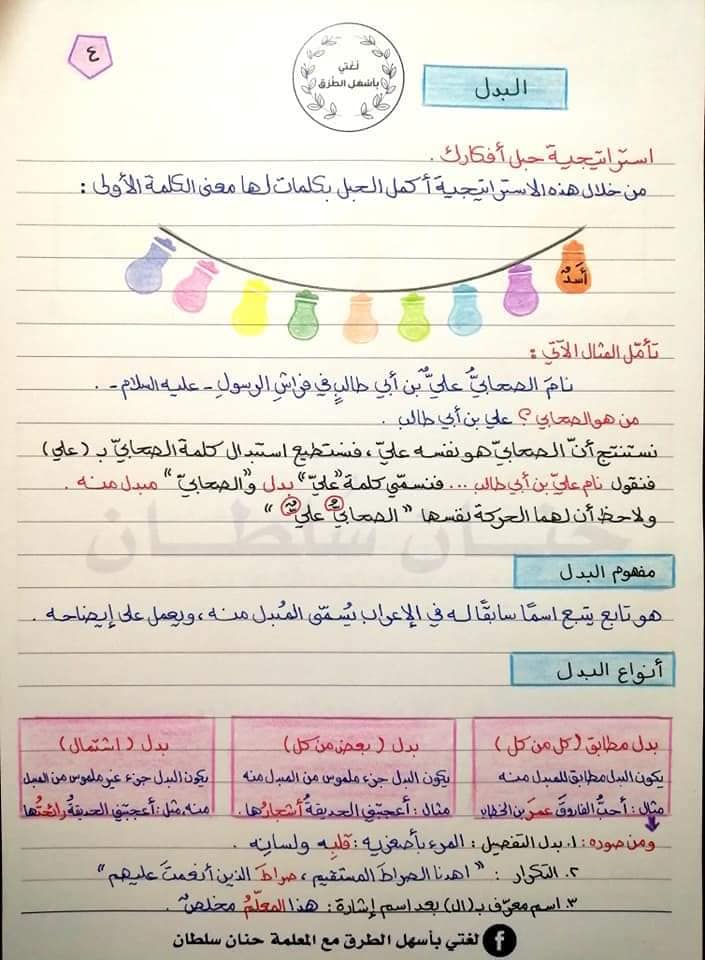 ٤
لُغتي
بأسهل الطُرق
البدل
استراتيجية حبل أفكارك .
من خلال هذه الاستراتيجية أكمل الحبل بكلمات لها معنى الكلمة الأولى :
أَسَدٌ
تأمّل المثال الآتي :
نامَ الصحابيُّ عليٌّ بن أبي طالبٍ في فراشِ الرسولِ - عليه السلام - .
من هو الصحابي ؟ علي بن أبي طالب .
نستنتج أنّ الصحابيّ هو نفسه عليّ ، فنستطيع استبدال كلمة الصحابيّ بـ (علي)
فنقول نام عليّ بن أبي طالب ... فنسمّي كلمة "عليّ" بدل و"الصحابيّ" مبدل منه .
ولاحظ أن لهما الحركة نفسها " الصحابيُّ عليٌّ "
حنان سلطان
مفهوم البدل
هو تابع يتبع اسمًا سابقًا له في الإعراب يُسمّى المُبدل منه ، ويعمل على إيضاحه .
أنواع البدل
بدل مطابق (كل من كل)
يكون البدل مطابق للمبدل منه
مثال : أحبُّ الفاروقَ عمرَ بن الخطاب
بدل (بعض من كل)
يكون البدل جزء ملموس من المبدل منه
مثال : أعجبتني الحديقةُ أشجارُها .
بدل (اشتمال)
يكون البدل جزء غير ملموس من المبدل
منه ، مثل : أعجبتني الحديقةُ رائحتُها
ومن صوره : ١. بدل التفصيل : المرء بأصغريه : قلبِه ولسانِه .
٢. التكرار : " اهدنا الصراطَ المستقيم ، صراطَ الذين أنعمتَ عليهم "
٣. اسم معرّف بـ (ال) بعد اسم إشارة : هذا المعلّمُ مخلصٌ .
لغتي بأسهل الطرق مع المعلمة حنان سلطان